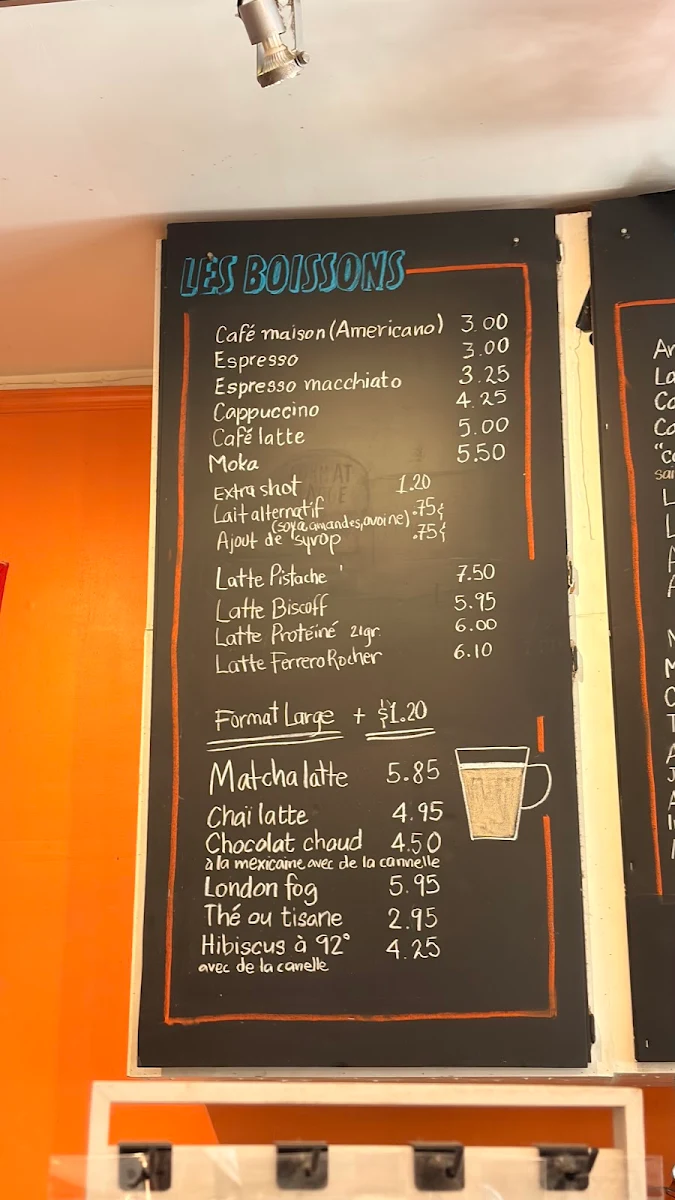 LES BOISSONS
Café maison (Americano) 3.00
Espresso 3.00
Espresso macchiato 3.25
Cappuccino 4.25
Café latte 5.00
Moka 5.50
Extra shot 1.20
Lait alternatif .75¢
(soya, amandes, avoine)
Ajout de syrop .75¢
Latte Pistache 7.50
Latte Biscoff 5.95
Latte Protéiné 21gr. 6.00
Latte Ferrero Rocher 6.10
Format Large + $1.20
Matcha latte 5.85
Chaï latte 4.95
Chocolat chaud 4.50
à la mexicaine avec de la cannelle
London fog 5.95
Thé ou tisane 2.95
Hibiscus à 92° 4.25
avec de la canelle